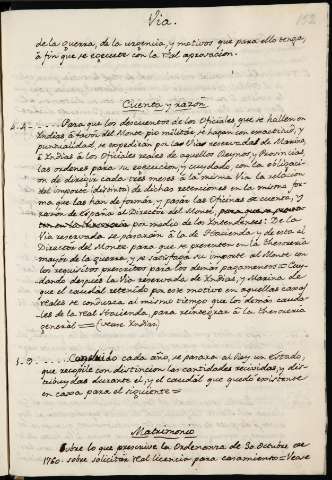 Via.
152
de la Guerra, de la urgencia, y motivos que para ello tenga,
à fin que se egecute con la Rl aprovacion.
Cuenta y razon
4.4 Para que los descuentos de los Oficiales que se hallen en
Indias à favor del Monte pio militar, se hagan con exactitud, y
puntualidad, se expedirán por las Vias reservadas de Marina,
è Indias à los Oficiales reales de aquellos Reynos, y Provincias,
las ordenes para su egecucion, y cuydado, con la obligacion
de dirigir cada tres meses à la misma Via la relacion
del importe (distinto) de dichas retenciones en la misma for
ma que las han de formar, y pasar las Oficinas de cuenta, y
razon de España al Director del Monte,
por medio de los Intendentes: De la
Via reservada se pasarán à la de Hacienda y de esta al
Director del Monte para que se presenten en la thesoreria
mayor de la guerra, y se satisfaga su importe al Monte con
los requisitos prescritos para los demás pagamentos = Cuy
dando despues la Via reservada de Indias, y Marina de
que el caudal retenido por este motivo en aquellas cajas
reales se conduzca al mismo tiempo que los demás cauda-
les de la real Hacienda, para reintegrar à la thesoreria
general = (vease Indias)
cada año, se pasará al Rey un Estado,
que recopile con distincion las cantidades recividas, y dis-
tribuydas durante él, y el caudal que quedó existente
en caxa para el siguiente =
Matrimonio
Sobre lo que prescrive la Ordenanza de 30 Octubre de
1760 sobre solicitar real licencia para casamiento = Vease